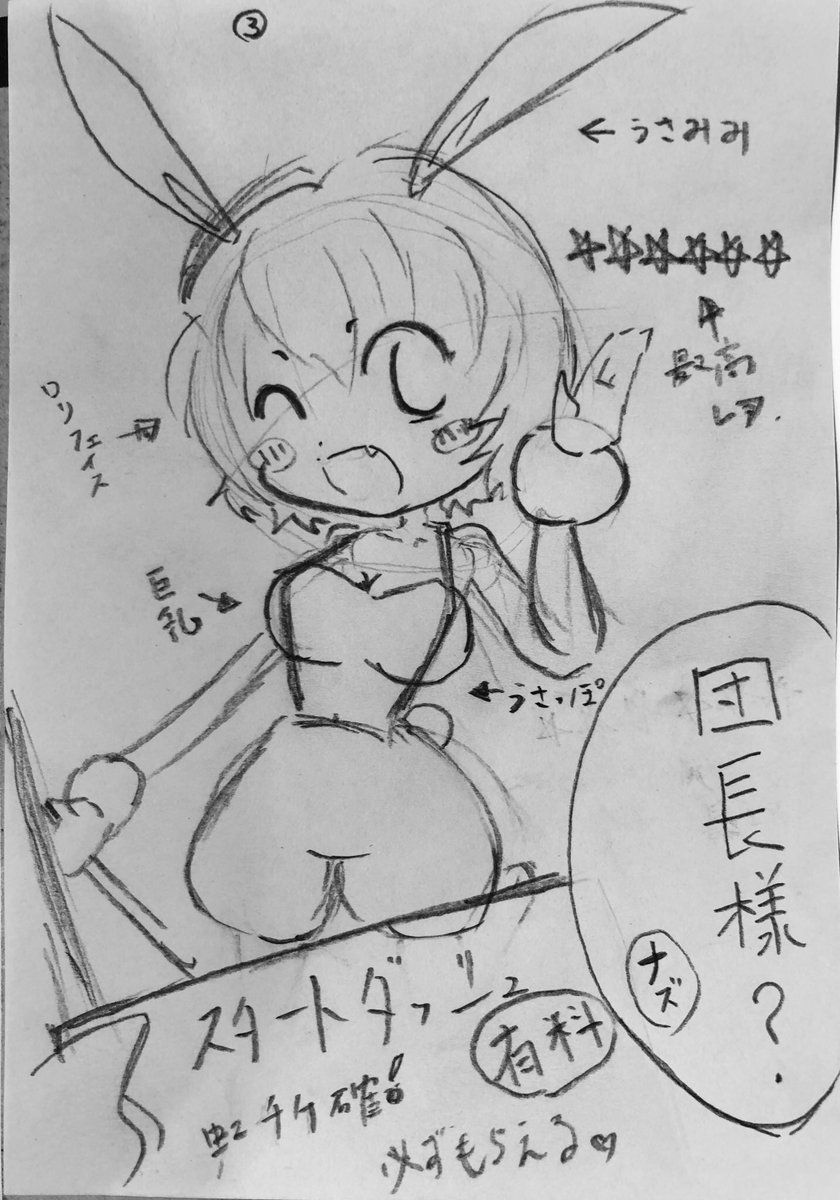 ③
←うさみみ
☆☆☆☆☆☆
↑
最高
レア.
ロリフェイス→
巨乳→
←うさっぽ
団長様?
ナズ
スタートダッシュ
有料
虹チケ確!
必ずもらえる♡